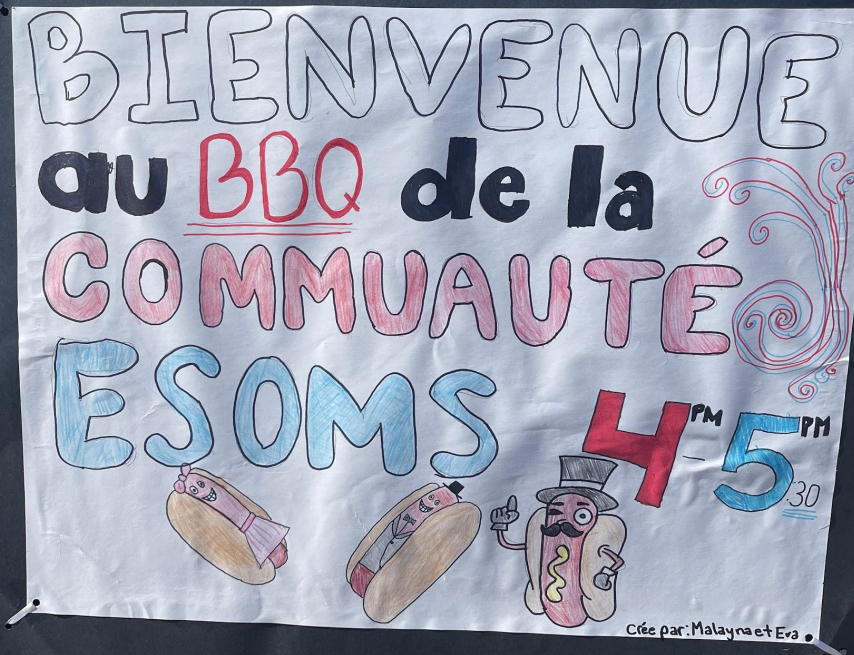 BIENVENUE
au BBQ de la
COMMUAUTÉ
ESOMS
4PM - 5PM :30
Crée par: Malayna et Eva